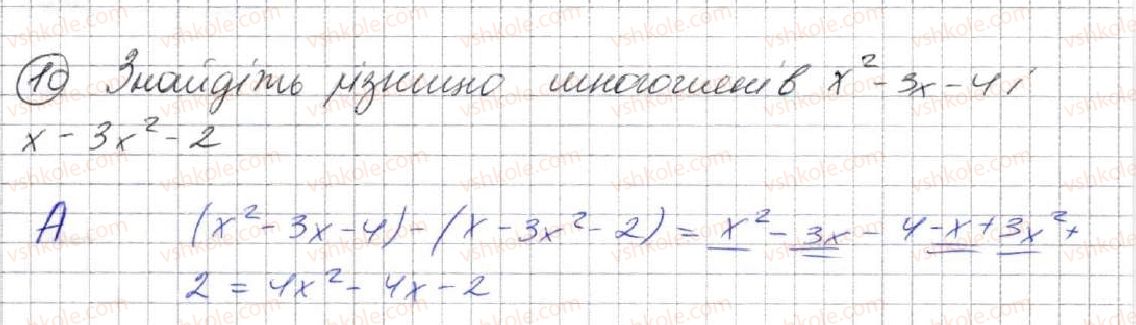 10 Знайдіть різницю многочленів x² - 3x - 4 і
x - 3x² - 2
А (x² - 3x - 4) - (x - 3x² - 2) = x² - 3x - 4 - x + 3x² +
2 = 4x² - 4x - 2